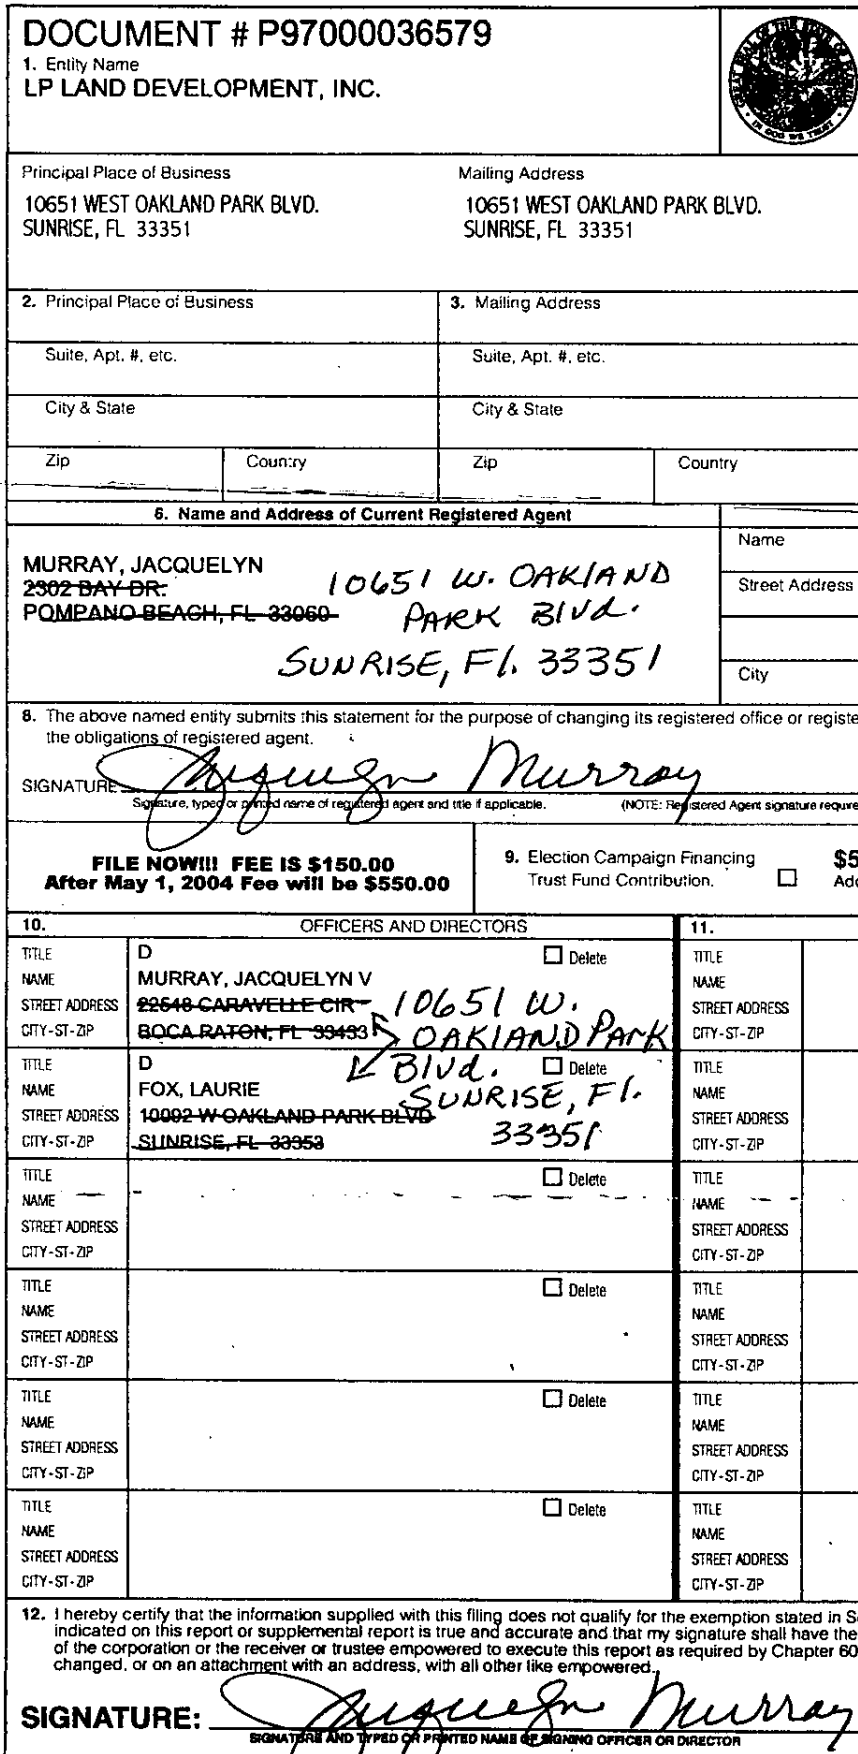 DOCUMENT # P97000036579
1. Entity Name
LP LAND DEVELOPMENT, INC.
GREAT SEAL OF THE STATE OF FLORIDA
IN GOD WE TRUST
Principal Place of Business
Mailing Address
10651 WEST OAKLAND PARK BLVD.
SUNRISE, FL 33351
10651 WEST OAKLAND PARK BLVD.
SUNRISE, FL 33351
2. Principal Place of Business
3. Mailing Address
Suite, Apt. #, etc.
Suite, Apt. #, etc.
City & State
City & State
Zip
Country
Zip
Country
6. Name and Address of Current Registered Agent
MURRAY, JACQUELYN
2302 BAY DR.
POMPANO BEACH, FL 33060
10651 W. OAKLAND
PARK Blvd.
SUNRISE, Fl. 33351
Name
Street Address
City
8. The above named entity submits this statement for the purpose of changing its registered office or registe
the obligations of registered agent.
SIGNATURE Jacquelyn Murray
Signature, typed or printed name of registered agent and title if applicable.
(NOTE: Registered Agent signature require
FILE NOW!!! FEE IS $150.00
After May 1, 2004 Fee will be $550.00
9. Election Campaign Financing
Trust Fund Contribution.
$5
Add
10.
OFFICERS AND DIRECTORS
11.
TITLE D Delete
NAME MURRAY, JACQUELYN V
STREET ADDRESS 22548 CARAVELLE CIR
CITY-ST-ZIP BOCA RATON, FL 33433
10651 W.
OAKLAND PARK
Blvd.
SUNRISE, Fl.
33351
TITLE D Delete
NAME FOX, LAURIE
STREET ADDRESS 10092 W OAKLAND PARK BLVD
CITY-ST-ZIP SUNRISE, FL 33353
TITLE Delete
NAME
STREET ADDRESS
CITY-ST-ZIP
TITLE Delete
NAME
STREET ADDRESS
CITY-ST-ZIP
TITLE Delete
NAME
STREET ADDRESS
CITY-ST-ZIP
TITLE Delete
NAME
STREET ADDRESS
CITY-ST-ZIP
TITLE
NAME
STREET ADDRESS
CITY-ST-ZIP
TITLE
NAME
STREET ADDRESS
CITY-ST-ZIP
TITLE
NAME
STREET ADDRESS
CITY-ST-ZIP
TITLE
NAME
STREET ADDRESS
CITY-ST-ZIP
TITLE
NAME
STREET ADDRESS
CITY-ST-ZIP
TITLE
NAME
STREET ADDRESS
CITY-ST-ZIP
12. I hereby certify that the information supplied with this filing does not qualify for the exemption stated in S
indicated on this report or supplemental report is true and accurate and that my signature shall have the
of the corporation or the receiver or trustee empowered to execute this report as required by Chapter 60
changed, or on an attachment with an address, with all other like empowered.
SIGNATURE: Jacquelyn Murray
SIGNATURE AND TYPED OR PRINTED NAME OF SIGNING OFFICER OR DIRECTOR